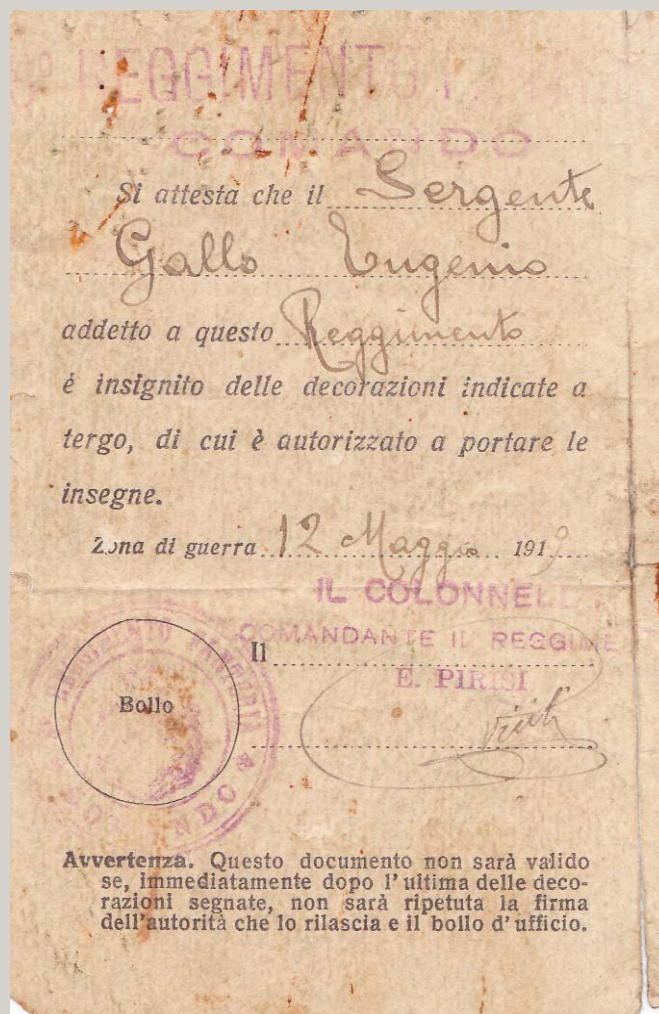 REGGIMENTO
COMANDO
Si attesta che il Sergente
Gallo Eugenio
addetto a questo Reggimento
é insignito delle decorazioni indicate a
tergo, di cui è autorizzato a portare le
insegne.
Zona di guerra 12 Maggio 1919
IL COLONNELL
COMANDANTE IL REGGIMENT
Il
E. PIRISI
REGGIMENTO FANTERIA
COMANDO
Bollo
Avvertenza. Questo documento non sarà valido
se, immediatamente dopo l'ultima delle deco-
razioni segnate, non sarà ripetuta la firma
dell'autorità che lo rilascia e il bollo d'ufficio.